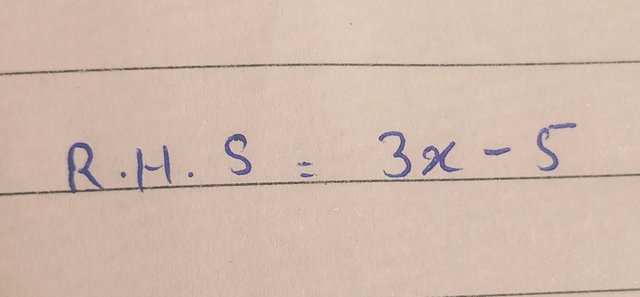 R.H.S = 3x - 5